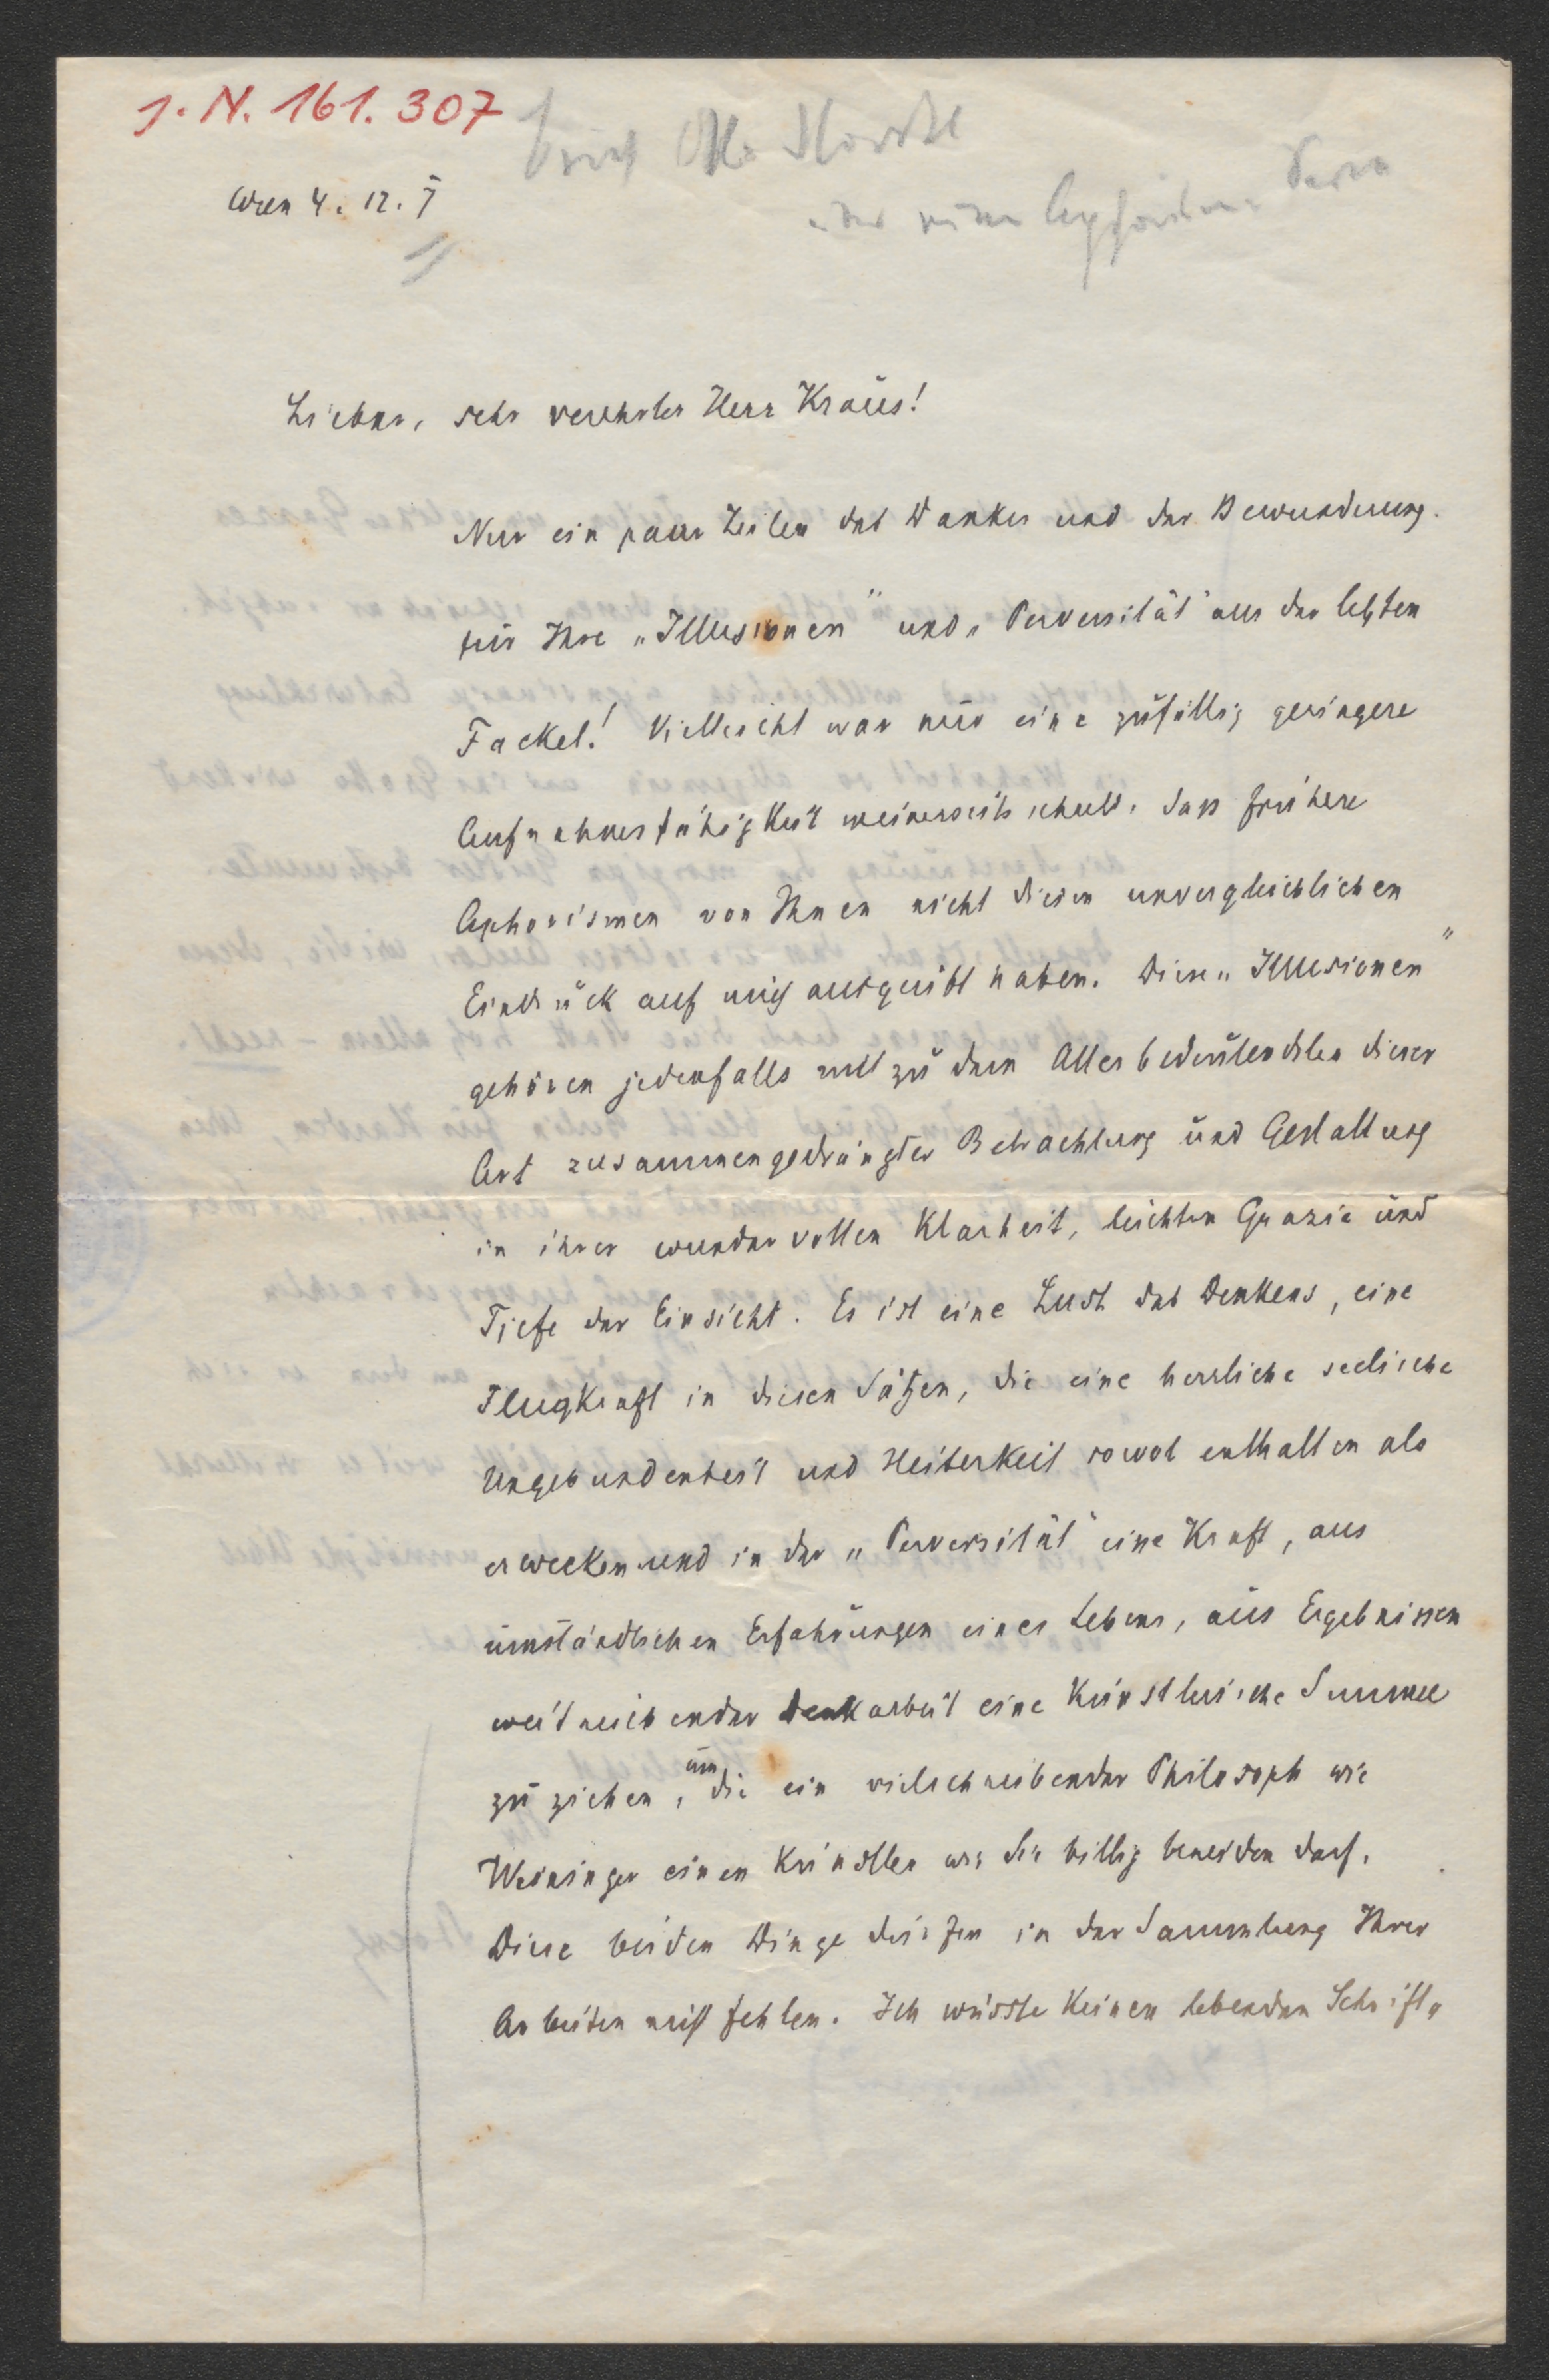 J. N. 161.307
Wien 4. 12. 7
Lieber, sehr verehrter Herr Kraus!
Nur ein paar Zeilen des Dankes und der Bewunderung
für Ihre „Illusionen" und „Perversität" aus der letzten
Fackel! Vielleicht war nur eine zufällig geringere
Aufnahmsfähigkeit meinerseits schuld, dass frühere
Aphorismen von Ihnen nicht diesen unvergleichlichen
Eindruck auf mich ausgeübt haben. Diese „Illusionen"
gehören jedenfalls mit zu dem Allerbedeutendsten dieser
Art zusammengedrängter Betrachtung und Gestaltung
in ihrer wundervollen Klarheit, leichten Grazie und
Tiefe der Einsicht. Es ist eine Lust des Denkens, eine
Flugkraft in diesen Sätzen, die eine herrliche seelische
Ungebundenheit und Heiterkeit sowol enthalten als
erwecken und in der „Perversität" eine Kraft, aus
umständlichen Erfahrungen eines Lebens, aus Ergebnissen
weitreichender Denkarbeit eine künstlerische Summe
zu ziehen, um die ein vielschreibender Philosoph wie
Weininger einen Künstler wie Sie billig beneiden darf.
Diese beiden Dinge dürfen in der Sammlung Ihrer
Arbeiten nicht fehlen. Ich wüsste keinen lebenden Schrift„